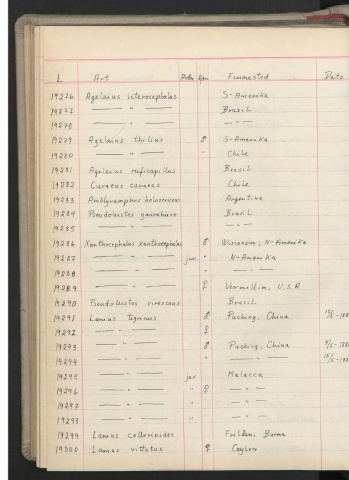 L Art Alder Kjøn Finnested Dato
19276 Agelaius icterocephalus S-Amerika
19277 — " — Brasil
19278 — " — — " —
19279 Agelaius thilius ♂ S-Amerika
19280 — " — " Chile
19281 Agelaius ruficapillus Brasil
19282 Curaeus curaeus Chile
19283 Amblyramphus holosericeus Argentina
19284 Pseudoleistes guirahuro Brasil
19285 — " — — " —
19286 Xanthocephalus xanthocephalus ♂ Wisconsin, N-Amerika
19287 — " — juv. " N-Amerika
19288 — " — " — " —
19289 — " — ♀ Vermillim, U.S.A
19290 Pseudoleistes virescens Brasil
19291 Lanius tigrinus ♂ Puching, China
19292 — " — ♀
19293 — " — ♂ Puching, China
19294 — " — " — " —
19295 — " — juv Malacca
19296 — " — " ♀ — " —
19297 — " — " — " —
19298 — " — " — " —
19299 Lanius collurioides Burma
19300 Lanius vittatus ♀ Ceylon